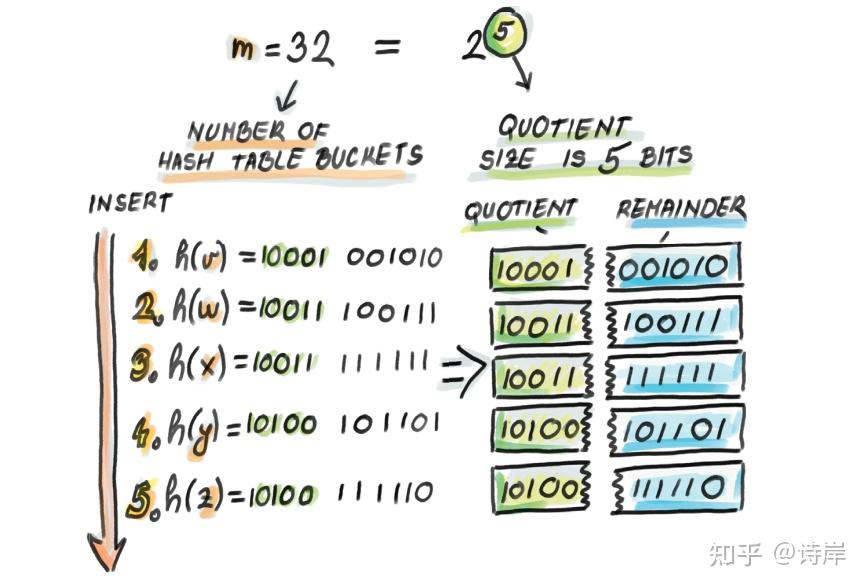 m = 32 = 2^5
NUMBER OF
HASH TABLE BUCKETS
QUOTIENT
SIZE IS 5 BITS
INSERT
QUOTIENT REMAINDER
1. h(v) = 10001 001010 10001 001010
2. h(w) = 10011 100111 10011 100111
3. h(x) = 10011 111111 ⇒ 10011 111111
4. h(y) = 10100 101101 10100 101101
5. h(z) = 10100 111110 10100 111110
知乎 @诗岸